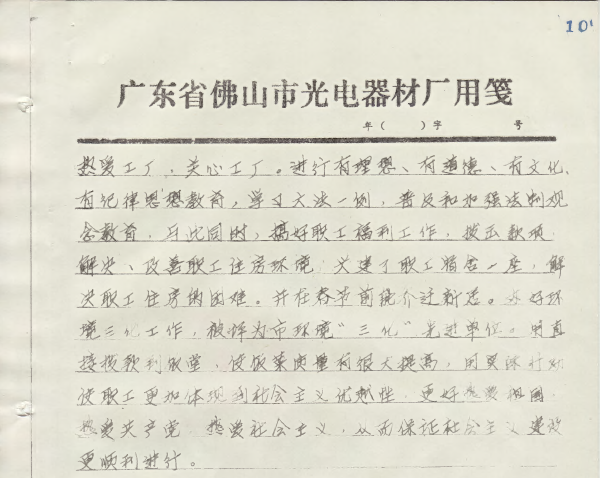 101
广东省佛山市光电器材厂用笺
年（ ）字 号
热爱工厂，关心工厂。进行有理想、有道德、有文化、
有纪律思想教育，学习大法一例，普及和加强法制观
念教育，与此同时，搞好职工福利工作，拨出款项，
解决、改善职工住房环境，兴建了职工宿舍一座，解
决职工住房的困难。并在春节前统介迁新居。好环
境三化工作，被评为市环境“三化”先进单位。用直
接拨款到饭堂，使饭菜质量有很大提高，用实际行动
使职工更加体现到社会主义优越性，更好热爱祖国，
热爱共产党，热爱社会主义，从而保证社会主义建设
更顺利进行。